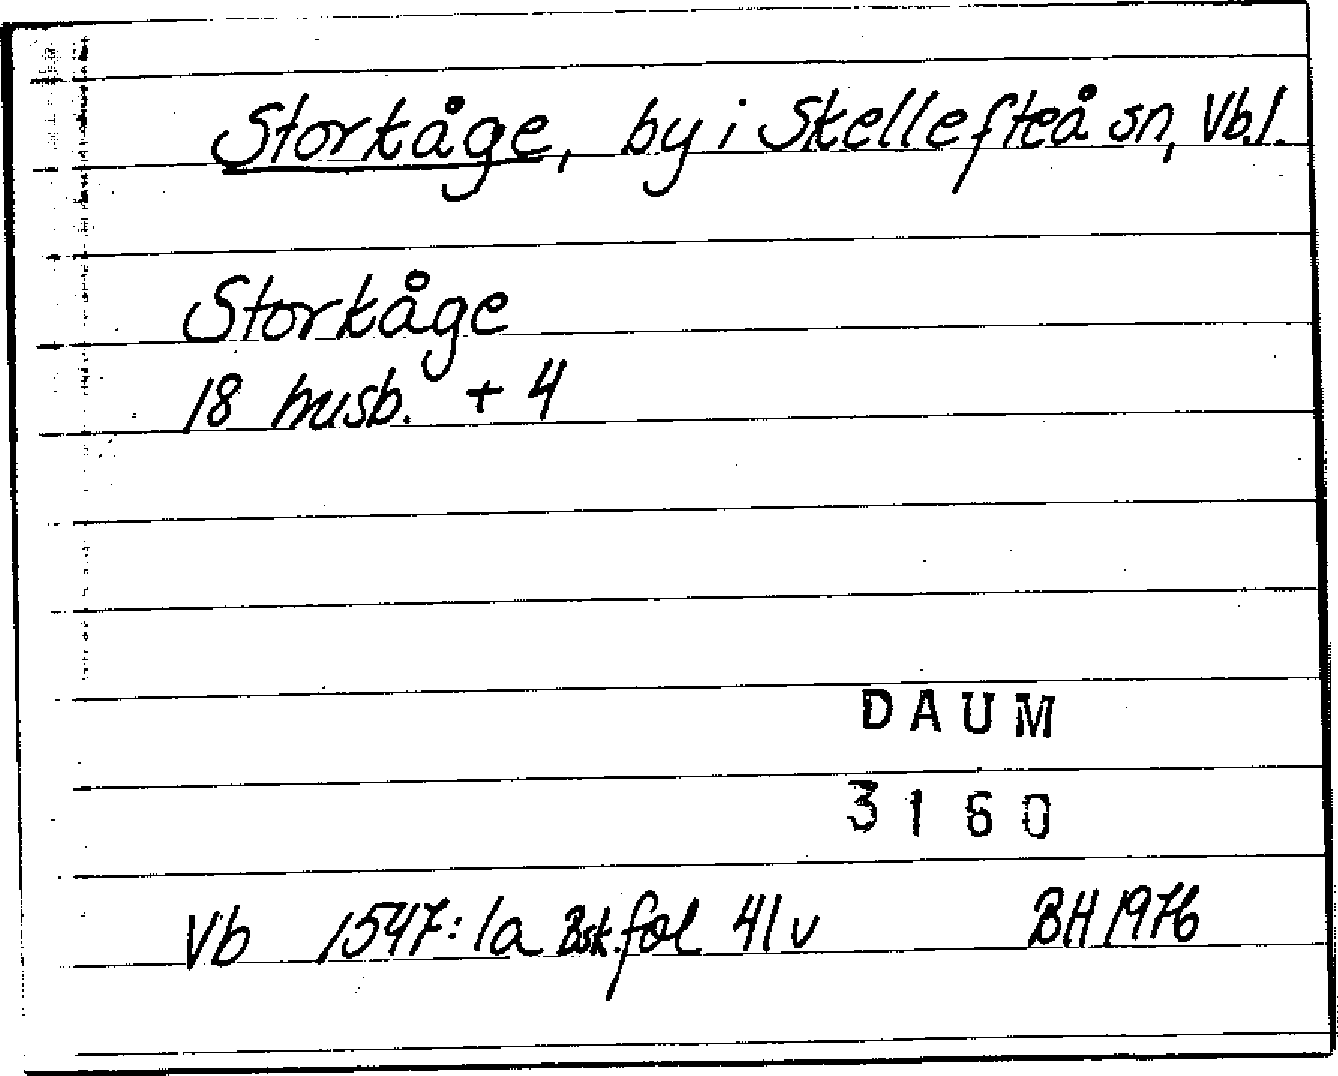 Storkåge, by i Skellefteå sn, Vb.l.
Storkåge
18 husb. + 4
DAUM
3160
Vb 1547:1a Bsk.fol 41v BH 1976